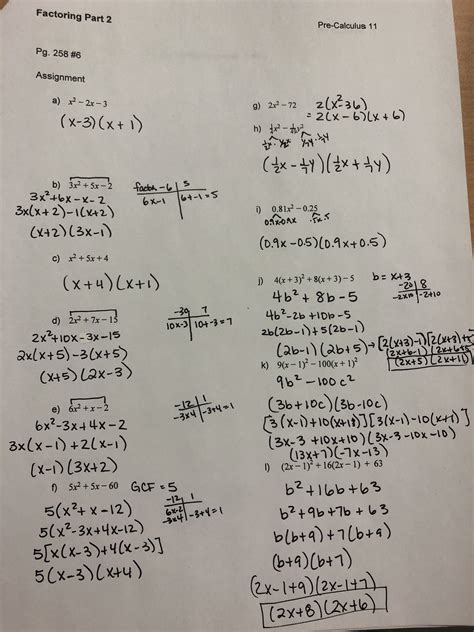 Factoring Part 2
Pre-Calculus 11
Pg. 258 #6
Assignment
a) x² – 2x – 3
(x-3)(x+1)
b) 3x² + 5x – 2
factor -6 | 5
6x-1 | 6+-1=5
3x²+6x-x-2
3x(x+2)-1(x+2)
(x+2)(3x-1)
c) x² + 5x + 4
(x+4)(x+1)
d) 2x² + 7x – 15
-30 | 7
10x-3 | 10+-3=7
2x²+10x-3x-15
2x(x+5)-3(x+5)
(x+5)(2x-3)
e) 6x² + x – 2
-12 | 1
-3x4 | -3+4=1
6x²-3x+4x-2
3x(x-1)+2(x-1)
(x-1)(3x+2)
f) 5x² + 5x – 60 GCF = 5
-12 | 1
6x-2
-3x4 | -3+4=1
5(x²+x-12)
5(x²-3x+4x-12)
5[x(x-3)+4(x-3)]
5(x-3)(x+4)
g) 2x² – 72
2(x²-36)
= 2(x-6)(x+6)
h)
(½x - ⅐y)(½x + ⅐y)
i) 0.81x² – 0.25
0.9x·0.9x .5x.5
(0.9x-0.5)(0.9x+0.5)
j) 4(x+3)² + 8(x+3) – 5
b = x+3
-20 | 8
-2x10 | -2+10
4b² + 8b - 5
4b²-2b+10b-5
2b(2b-1)+5(2b-1)
(2b-1)(2b+5) → [2(x+3)-1][2(x+3)+5]
(2x+6-1)(2x+6+5)
(2x+5)(2x+11)
k) 9(x–1)² – 100(x+1)²
9b² - 100c²
(3b+10c)(3b-10c)
[3(x-1)+10(x+1)][3(x-1)-10(x+1)]
(3x-3+10x+10)(3x-3-10x-10)
(13x+7)(-7x-13)
l) (2x–1)² + 16(2x–1) + 63
b²+16b+63
b²+9b+7b+63
b(b+9)+7(b+9)
(b+9)(b+7)
(2x-1+9)(2x-1+7)
(2x+8)(2x+6)